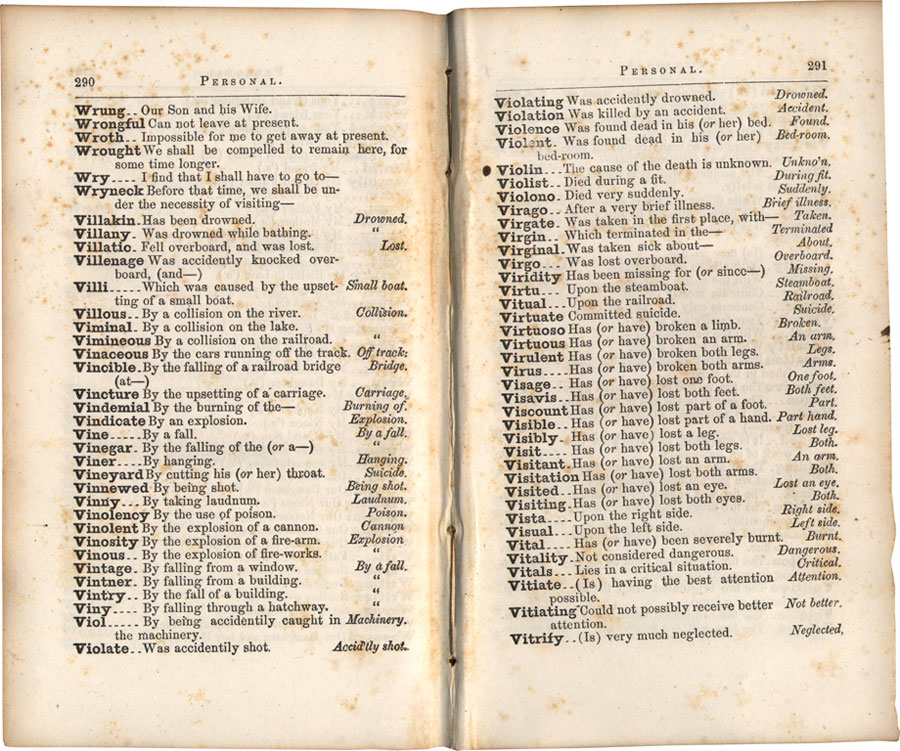 290 PERSONAL.
Wrung.. Our Son and his Wife.
Wrongful Can not leave at present.
Wroth.. Impossible for me to get away at present.
Wrought We shall be compelled to remain here, for
some time longer.
Wry.... I find that I shall have to go to—
Wryneck Before that time, we shall be un-
der the necessity of visiting—
Villakin. Has been drowned. Drowned.
Villany. Was drowned while bathing. "
Villatic. Fell overboard, and was lost. Lost.
Villenage Was accidently knocked over-
board, (and—)
Villi..... Which was caused by the upset- Small boat.
ting of a small boat.
Villous.. By a collision on the river. Collision.
Viminal. By a collision on the lake.
Vimineous By a collision on the railroad. "
Vinaceous By the cars running off the track. Off track.
Vincible. By the falling of a railroad bridge Bridge.
(at—)
Vincture By the upsetting of a carriage. Carriage.
Vindemial By the burning of the— Burning of.
Vindicate By an explosion. Explosion.
Vine..... By a fall. By a fall.
Vinegar. By the falling of the (or a—) "
Viner.... By hanging. Hanging.
Vineyard By cutting his (or her) throat. Suicide.
Vinnewed By being shot. Being shot.
Vinny... By taking laudnum. Laudnum.
Vinolency By the use of poison. Poison.
Vinolent By the explosion of a cannon. Cannon
Vinosity By the explosion of a fire-arm. Explosion
Vinous.. By the explosion of fire-works. "
Vintage. By falling from a window. By a fall.
Vintner. By falling from a building. "
Vintry.. By the fall of a building. "
Viny.... By falling through a hatchway. "
Viol..... By being accidentily caught in Machinery.
the machinery.
Violate.. Was accidentily shot. Accid'tly shot.
PERSONAL. 291
Violating Was accidently drowned. Drowned.
Violation Was killed by an accident. Accident.
Violence Was found dead in his (or her) bed. Found.
Violent. Was found dead in his (or her) Bed-room.
bed-room.
Violin... The cause of the death is unknown. Unkno'n.
Violist.. Died during a fit. During fit.
Violono. Died very suddenly. Suddenly.
Virago.. After a very brief illness. Brief illness.
Virgate. Was taken in the first place, with— Taken.
Virgin.. Which terminated in the— Terminated
Virginal. Was taken sick about— About.
Virgo... Was lost overboard. Overboard.
Viridity Has been missing for (or since—) Missing.
Virtu... Upon the steamboat. Steamboat.
Vitual... Upon the railroad. Railroad.
Virtuate Committed suicide. Suicide.
Virtuoso Has (or have) broken a limb. Broken.
Virtuous Has (or have) broken an arm. An arm.
Virulent Has (or have) broken both legs. Legs.
Virus.... Has (or have) broken both arms. Arms.
Visage.. Has (or have) lost one foot. One foot.
Visavis.. Has (or have) lost both feet. Both feet.
Viscount Has (or have) lost part of a foot. Part.
Visible.. Has (or have) lost part of a hand. Part hand.
Visibly. Has (or have) lost a leg. Lost leg.
Visit.... Has (or have) lost both legs. Both.
Visitant. Has (or have) lost an arm. An arm.
Visitation Has (or have) lost both arms. Both.
Visited.. Has (or have) lost an eye. Lost an eye.
Visiting. Has (or have) lost both eyes. Both.
Vista.... Upon the right side. Right side.
Visual... Upon the left side. Left side.
Vital.... Has (or have) been severely burnt. Burnt.
Vitality. Not considered dangerous. Dangerous.
Vitals... Lies in a critical situation. Critical.
Vitiate.. (Is) having the best attention Attention.
possible.
Vitiating Could not possibly receive better Not better.
attention.
Vitrify.. (Is) very much neglected. Neglected,